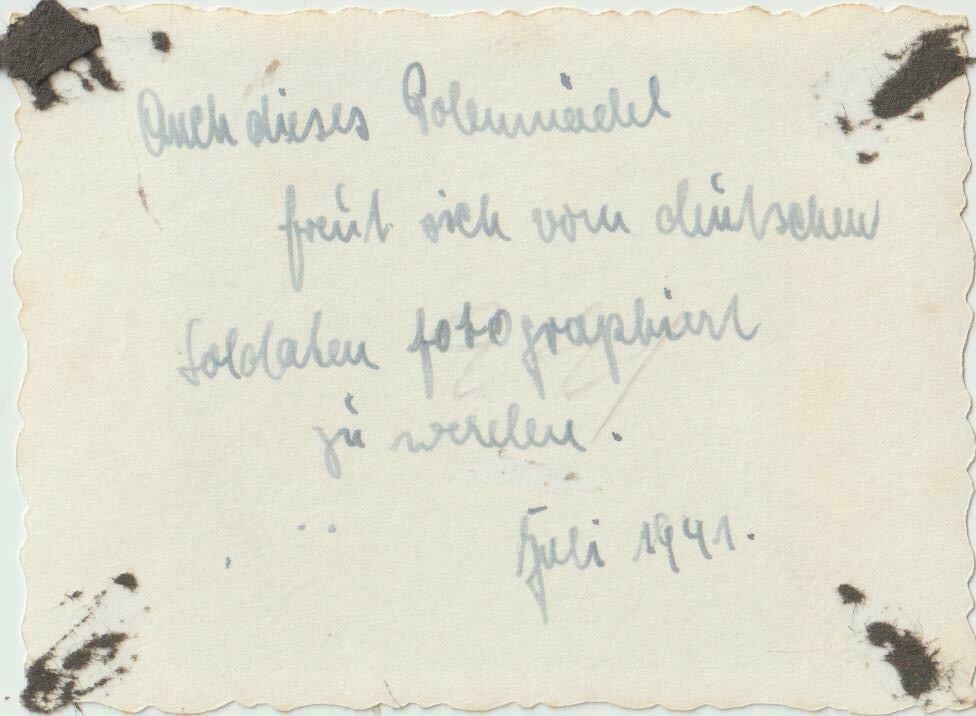 Auch dieses Polenmädel
freut sich vom deutschen
Soldaten fotographiert
zu werden.
Juli 1941.